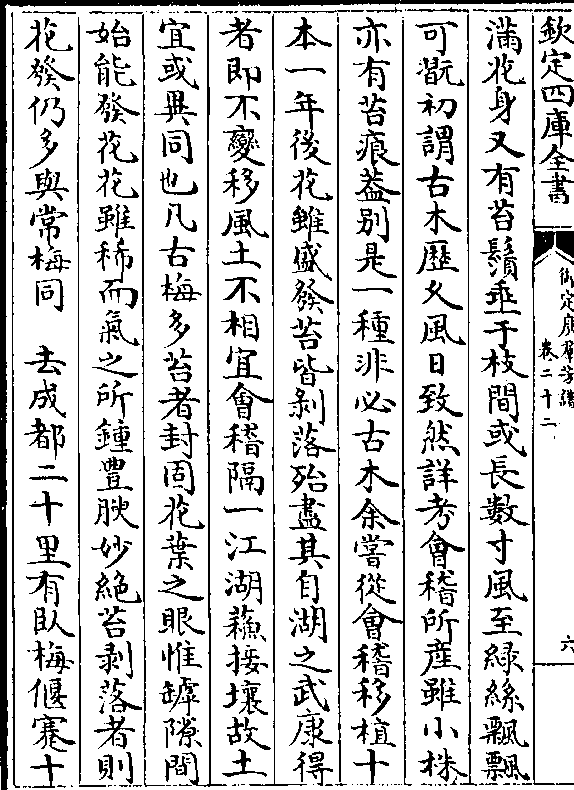 欽定四庫全書
御定廣羣芳譜
卷二十二
六
滿花身又有苔鬚垂于枝間或長數寸風至緑絲飄飄
可翫初謂古木歷久風日致然詳考㑹稽所産雖小株
亦有苔痕葢别是一種非必古木余嘗從㑹稽移植十
本一年後花雖盛發苔皆剝落殆盡其自湖之武康得
者即不變移風土不相宜㑹稽隔一江湖蘓接壤故土
宜或異同也凡古梅多苔者封固花葉之眼惟罅隙間
始能發花花雖稀而氣之所鍾豐腴妙絶苔剥落者則
花發仍多與常梅同　去成都二十里有卧梅偃蹇十